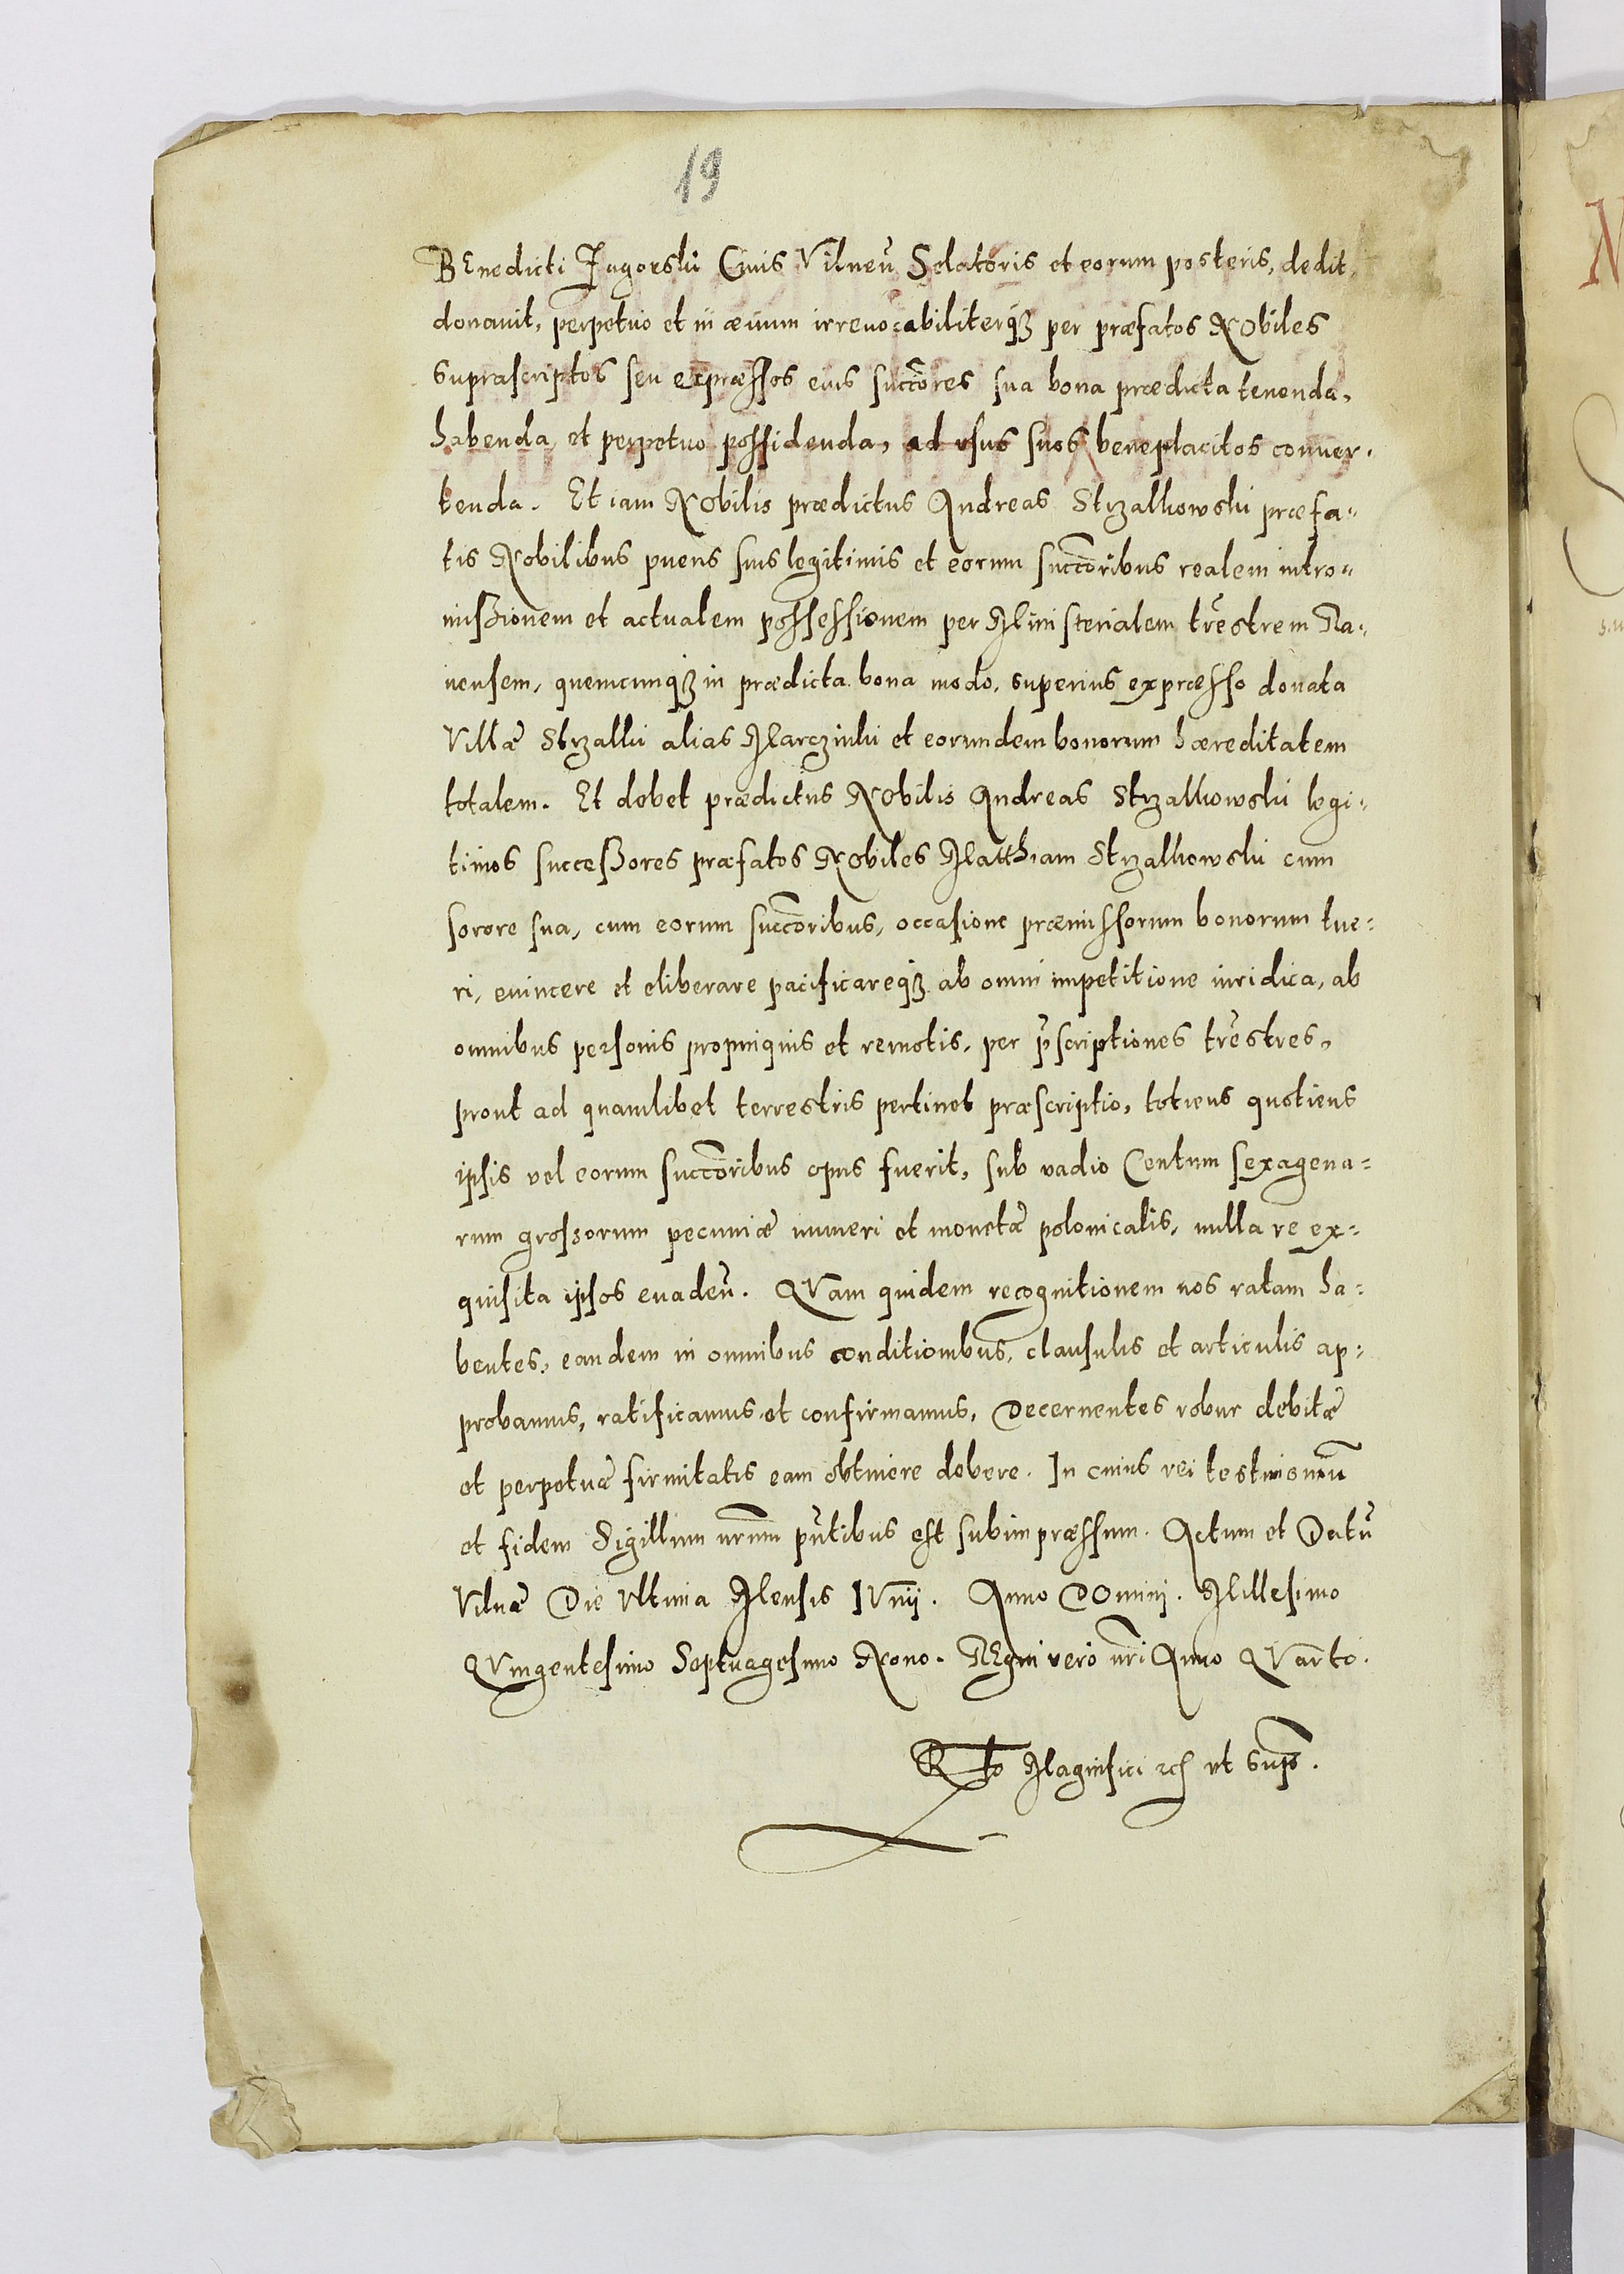 19
BEnedicti Jugoeski Ciuis Vilneñ Selatoris et eorum posteris, dedit,
donauit, perpetuo et in æuum irreuocabiliterqꝫ per præfatos NObiles
suprascriptos seu expræssos eius succ̃ores sua bona prædicta tenenda,
habenda, et perpetuo possidenda, ad vsus suos beneplacitos conuer-
tenda. Et iam NObilis prædictus Andreas Strzalkowski præfa-
tis NObilibus pueris suis legitimis et eorum succ̃oribus realem intro-
mißionem et actualem possessionem per Ministerialem tr̃estrem Ra-
uensem, quemcunqꝫ in prædicta bona modo, superius expræsso donata
Villæ Strzalki alias Marczinki et eorundem bonorum hæreditatem
totalem. Et debet prædictus NObilis Andreas Strzalkowski legi-
timos succeßores præfatos NObiles Matthiam Strzalkowski cum
sorore sua, cum eorum succ̃oribus, occasione præmissorum bonorum tue-
ri, euincere et eliberare pacificareqꝫ ab omni impetitione iuridica, ab
omnibus personis propinquis et remotis, per p̃scriptiones tr̃estres,
prout ad quamlibet terrestris pertinet præscriptio, totiens quotiens
ipsis vel eorum succ̃oribus opus fuerit, sub vadio Centum sexagena-
rum grossorum pecuniæ numeri et monetæ polonicalis, nulla re ex-
quisita ipsos euadeñ. QVam quidem recognitionem nos ratam ha-
bentes, eandem in omnibus conditionibus, clausulis et articulis ap-
probamus, ratificamus et confirmamus, Decernentes robur debitæ
et perpetuæ firmitatis eam obtinere debere. In cuius rei testimoniũ
et fidem Sigillum nr̃um pñtibus est subimpræssum. Actum et Datũ
Vilnæ Die Vltima Mensis IVnij. Anno DOmini. Millesimo
QVingentesimo Septuagesimo Nono. REgni vero nr̃i Anno QVarto.
Rtõ Magnifici ꝛcʒ vt sup̃.